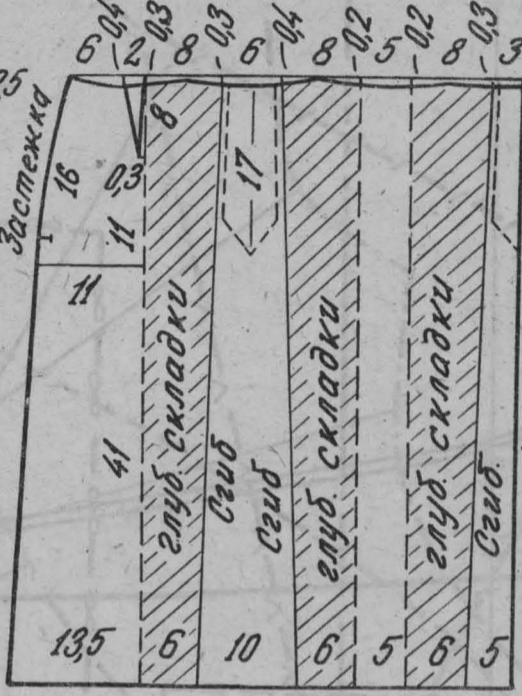 6 0,4 2 0,3 8 0,3 6 0,4 8 0,2 5 0,2 8 0,3
Застежка
16
0,3
8
17
11
11
41
глуб. складки
Сгиб
Сгиб
глуб. складки
глуб. складки
Сгиб
13,5 6 10 6 5 6 5